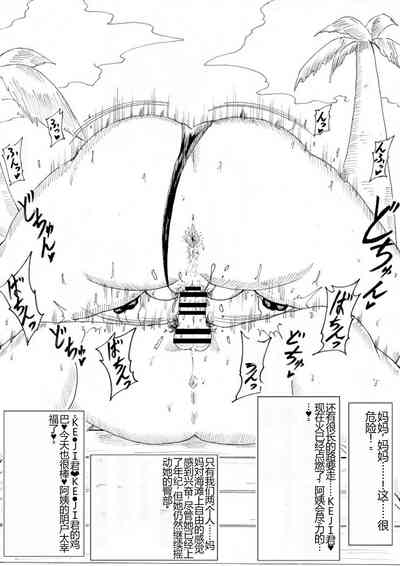 妈妈，妈妈……！这……很
危险！-
还有很长的路要走-……KE●JI君♥
现在火已经点燃了！阿姨会尽力的…
…♥
只有我们两个人……妈
妈对海滩上自由的感觉
感到兴奋-尽管她已经上
了年纪，但她仍然继续摇
动她的臀部♥
♨KE●JI君♥KE●JI君的鸡
巴♥今天也很棒♥阿姨的阴户太幸
福了♥-
んふっ♥
んふーっ♥
どちゅん♥
ばちんっ
どちゅっ
ばちんっ
ふんっ♥
ふんっ♥
どちゅん
ばちんっ
どちゅっ
ばちんっ